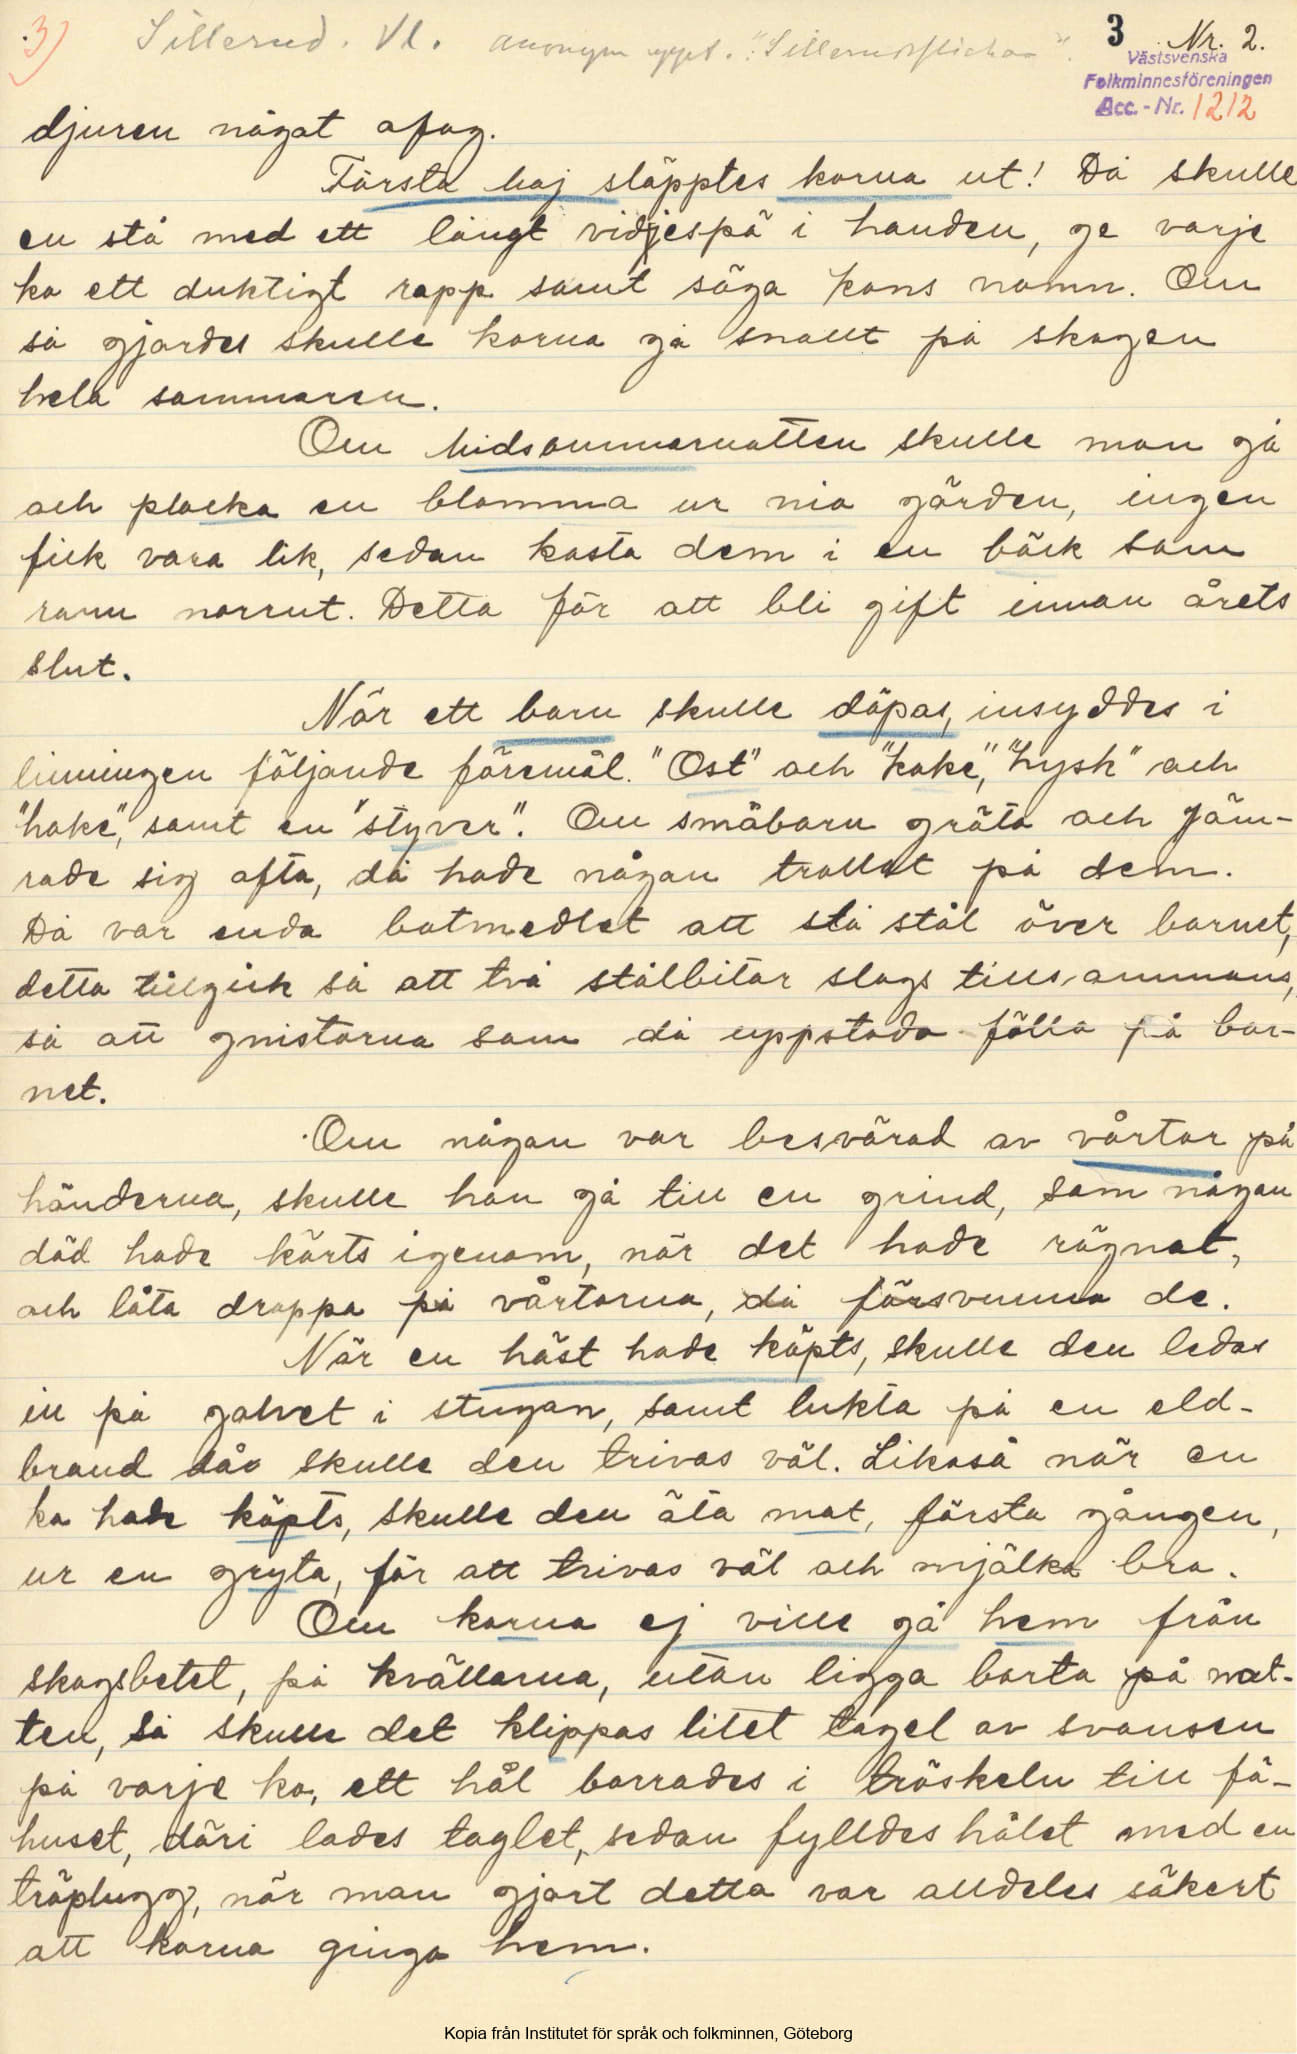 3) Sillerud. Vl. anonym uppt. "Sillerudsflickan". 3 Nr. 2.
Västsvenska
Folkminnesföreningen
Acc.-Nr. 1212
djuren något ofog.
Första Maj släpptes korna ut! Då skulle
en stå med ett långt vidjespö i handen, ge varje
ko ett duktigt rapp samt säga kons namn. Om
så gjordes skulle korna gå snällt på skogen
hela sommaren.
Om Midsommarnatten skulle man gå
och plocka en blomma ur nio gärden, ingen
fick vara lik, sedan kasta dem i en bäck som
rann norrut. Detta för att bli gift innan årets
slut.
När ett barn skulle döpas, insyddes i
linningen följande föremål. "Ost" och "kake", "hysk" och
"hake", samt en "styver". Om småbarn gräto och jäm-
rade sig ofta, då hade någon trollat på dem.
Då var enda botmedlet att slå stål över barnet,
detta tillgick så att två stålbitar slogs tillsammans,
så att gnistorna som då uppstodo föllo på bar-
net.
Om någon var besvärad av vårtor på
händerna, skulle han gå till en grind, som någon
död hade körts igenom, när det hade rägnat,
och låta droppa på vårtorna, då försvunno de.
När en häst hade köpts, skulle den ledas
in på golvet i stugan, samt lukta på en eld-
brand då skulle den trivas väl. Likaså när en
ko hade köpts, skulle den äta mat, första gången,
ur en gryta, för att trivas väl och mjölka bra.
Om korna ej ville gå hem från
skogsbetet, på kvällarna, utan ligga borta på nat-
ten, så skulle det klippas litet tagel av svansen
på varje ko, ett hål borrades i tröskeln till fä-
huset, däri lades taglet, sedan fylldes hålet med en
träplugg, när man gjort detta var alldeles säkert
att korna gingo hem.
Kopia från Institutet för språk och folkminnen, Göteborg